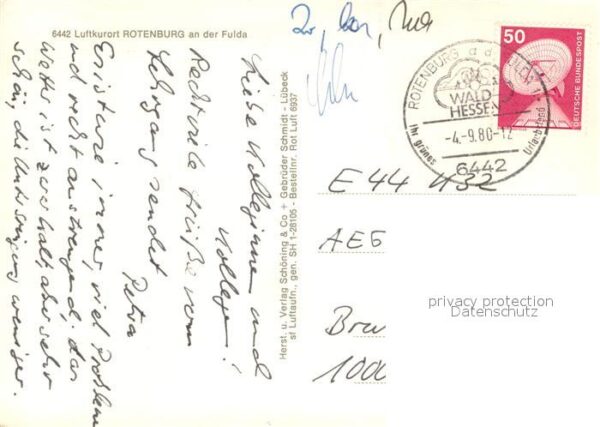 6442 Luftkurort ROTENBURG an der Fulda
Liebe Kolleginnen und
Kollegen!
Recht viele Grüße vom
Lehrgang sendet
Petra
Es ist wie immer, viel Problem
und recht anstrengend; das
Wetter ist zwar kalt aber sehr
schön, die Unterbringung weniger.
Herst. u. Verlag Schöning & Co + Gebrüder Schmidt - Lübeck
sf Luftaufn., gen. SH 1-28105 - Bestellnr. Rot Luft 6937
50
DEUTSCHE BUNDESPOST
ROTENBURG a d
WALD
HESSEN
-4.-9.80-12
Ihr grünes Urlaubsland
6442
E 44 432
AEG
1000
privacy protection
Datenschutz